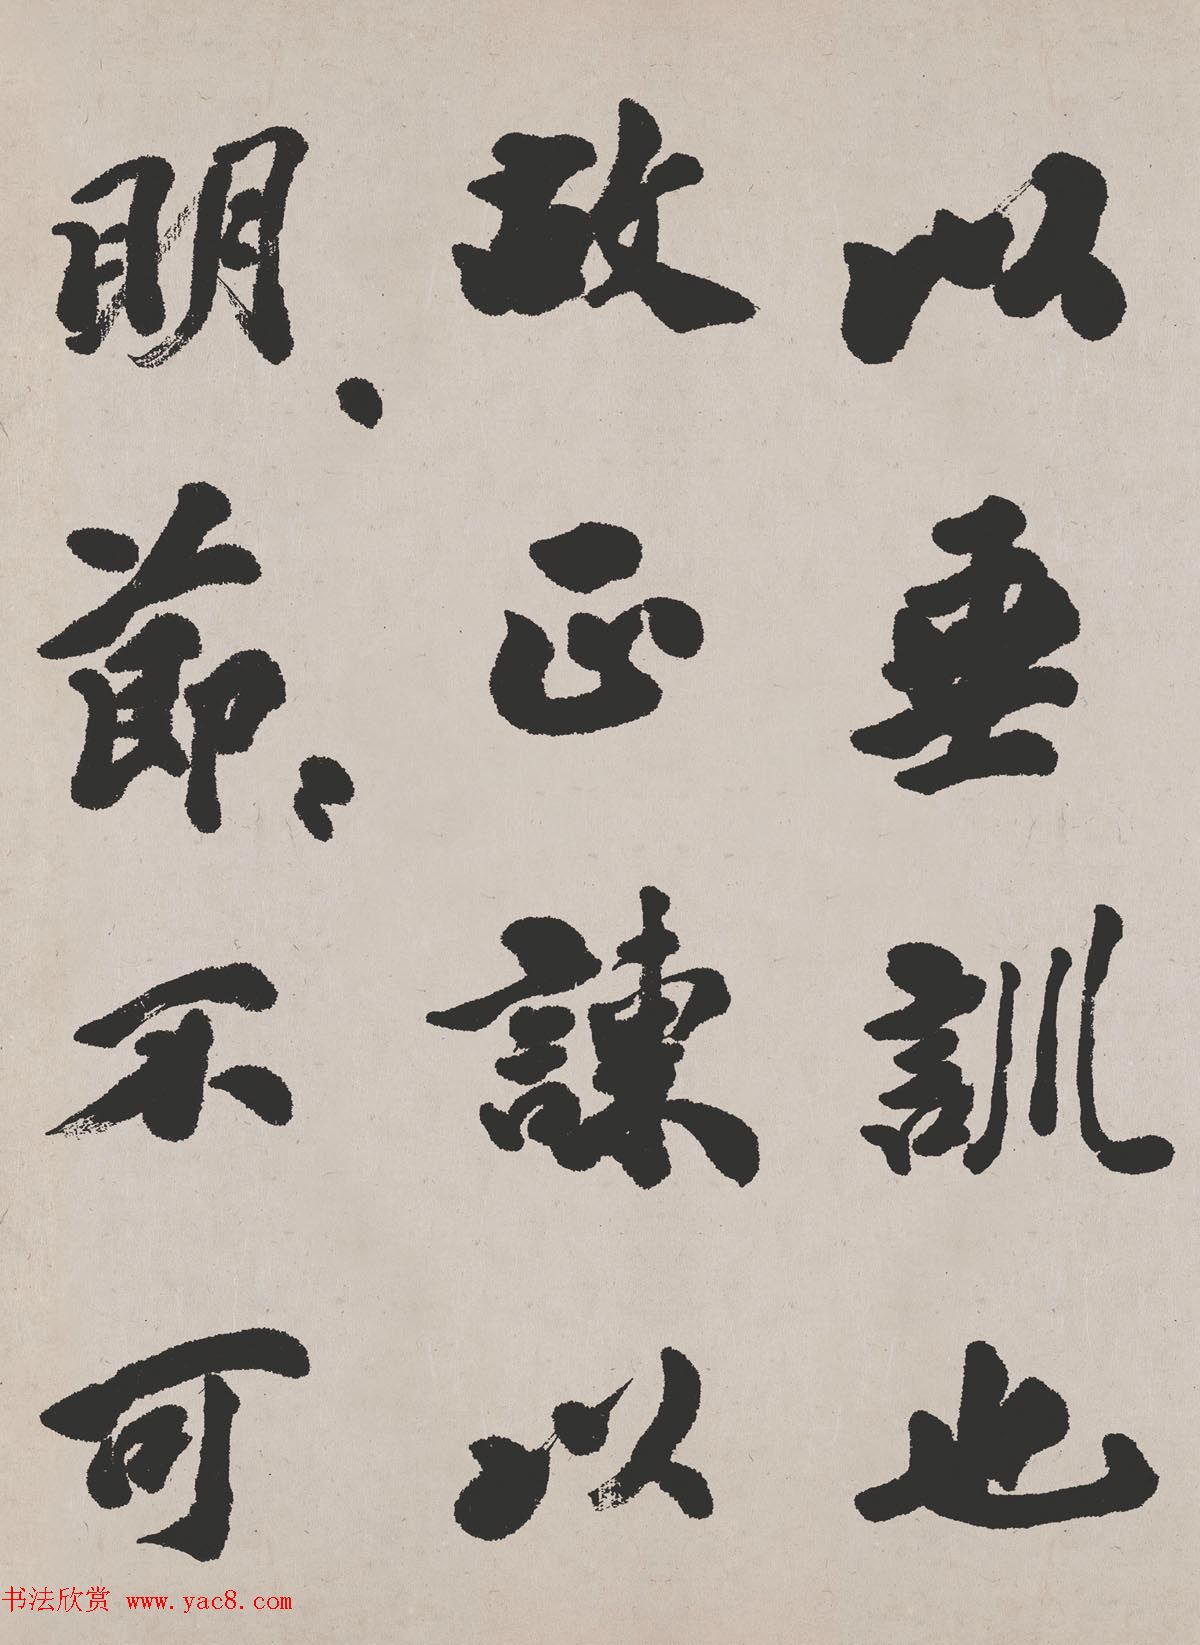 以垂訓也
故正諫以
明、節、不可
书法欣赏 www.yac8.com